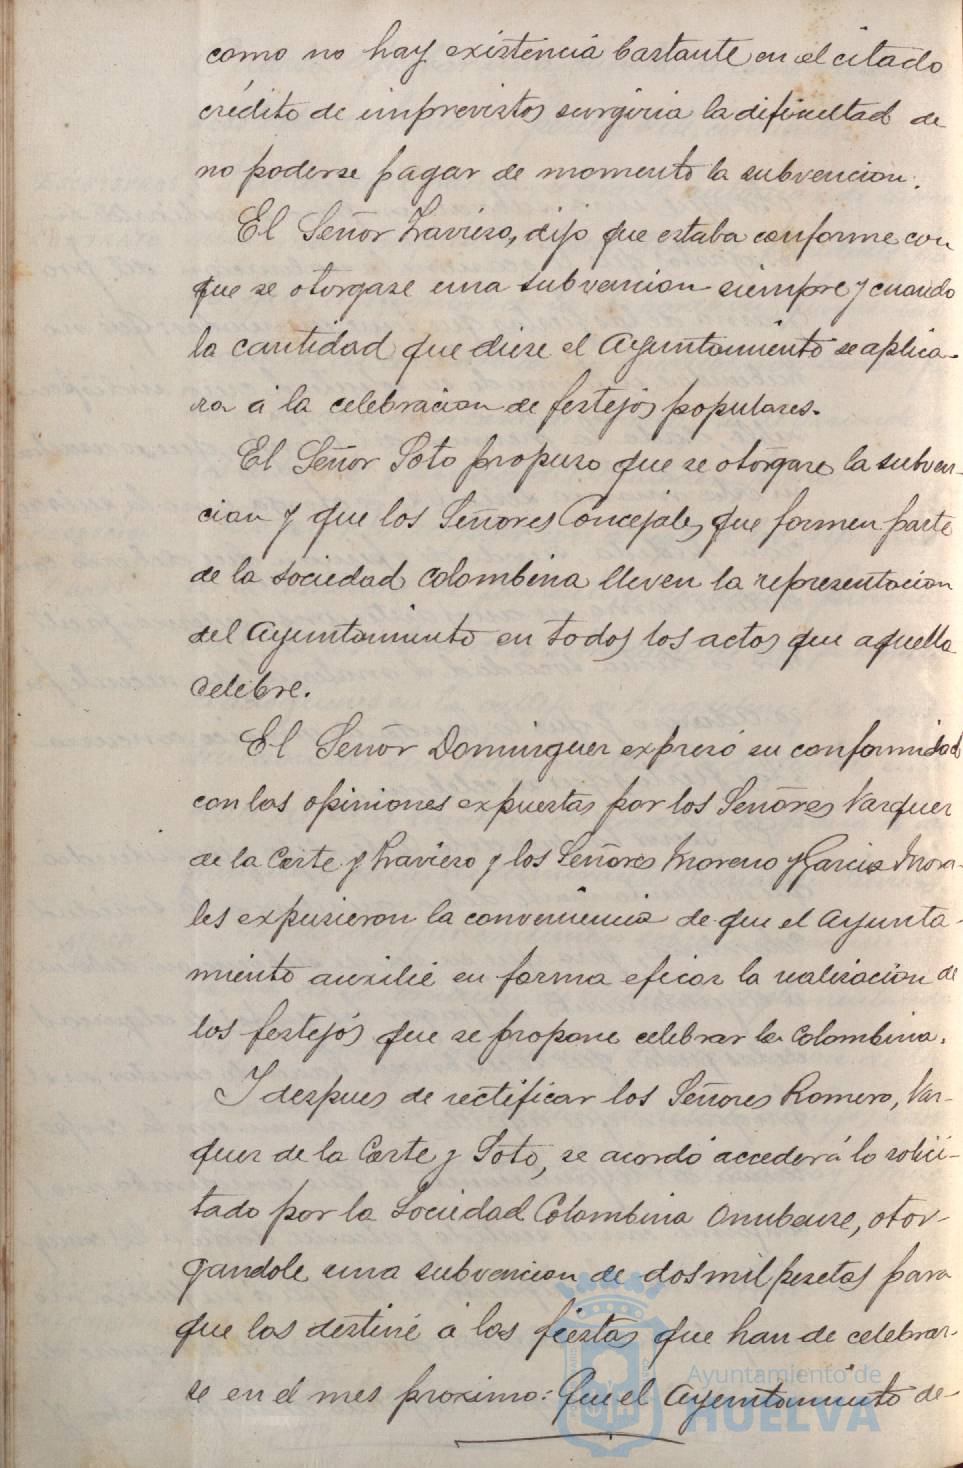 como no hay existencia bastante en el citado
crédito de imprevistos surgiria la dificultad de
no poderse pagar de momento la subvencion.
El Señor Travieso, dijo que estaba conforme con
que se otorgase una subvencion siempre y cuando
la cantidad que diese el Ayuntamiento se aplica-
ra á la celebracion de festejos populares.
El Señor Soto propuso que se otorgase la subven-
cion y que los Señores Concejales que formen parte
de la sociedad Colombina lleven la representacion
del Ayuntamiento en todos los actos que aquella
celebre.
El Señor Dominguez expresó su conformidad
con las opiniones expuestas por los Señores Vazquez
de la Corte y Travieso y los Señores Moreno y Garcia Mora-
les expusieron la conveniencia de que el Ayunta-
miento auxilie en forma eficaz la realizacion de
los festejos que se propone celebrar la Colombina.
Y despues de rectificar los Señores Romero, Vaz-
quez de la Corte y Soto, se acordó acceder á lo solici-
tado por la Sociedad Colombina Onubense, otor-
gandole una subvencion de dos mil pesetas para
que las destine á las fiestas que han de celebrar-
se en el mes proximo: Que el Ayuntamiento de-
Ayuntamiento de
HUELVA